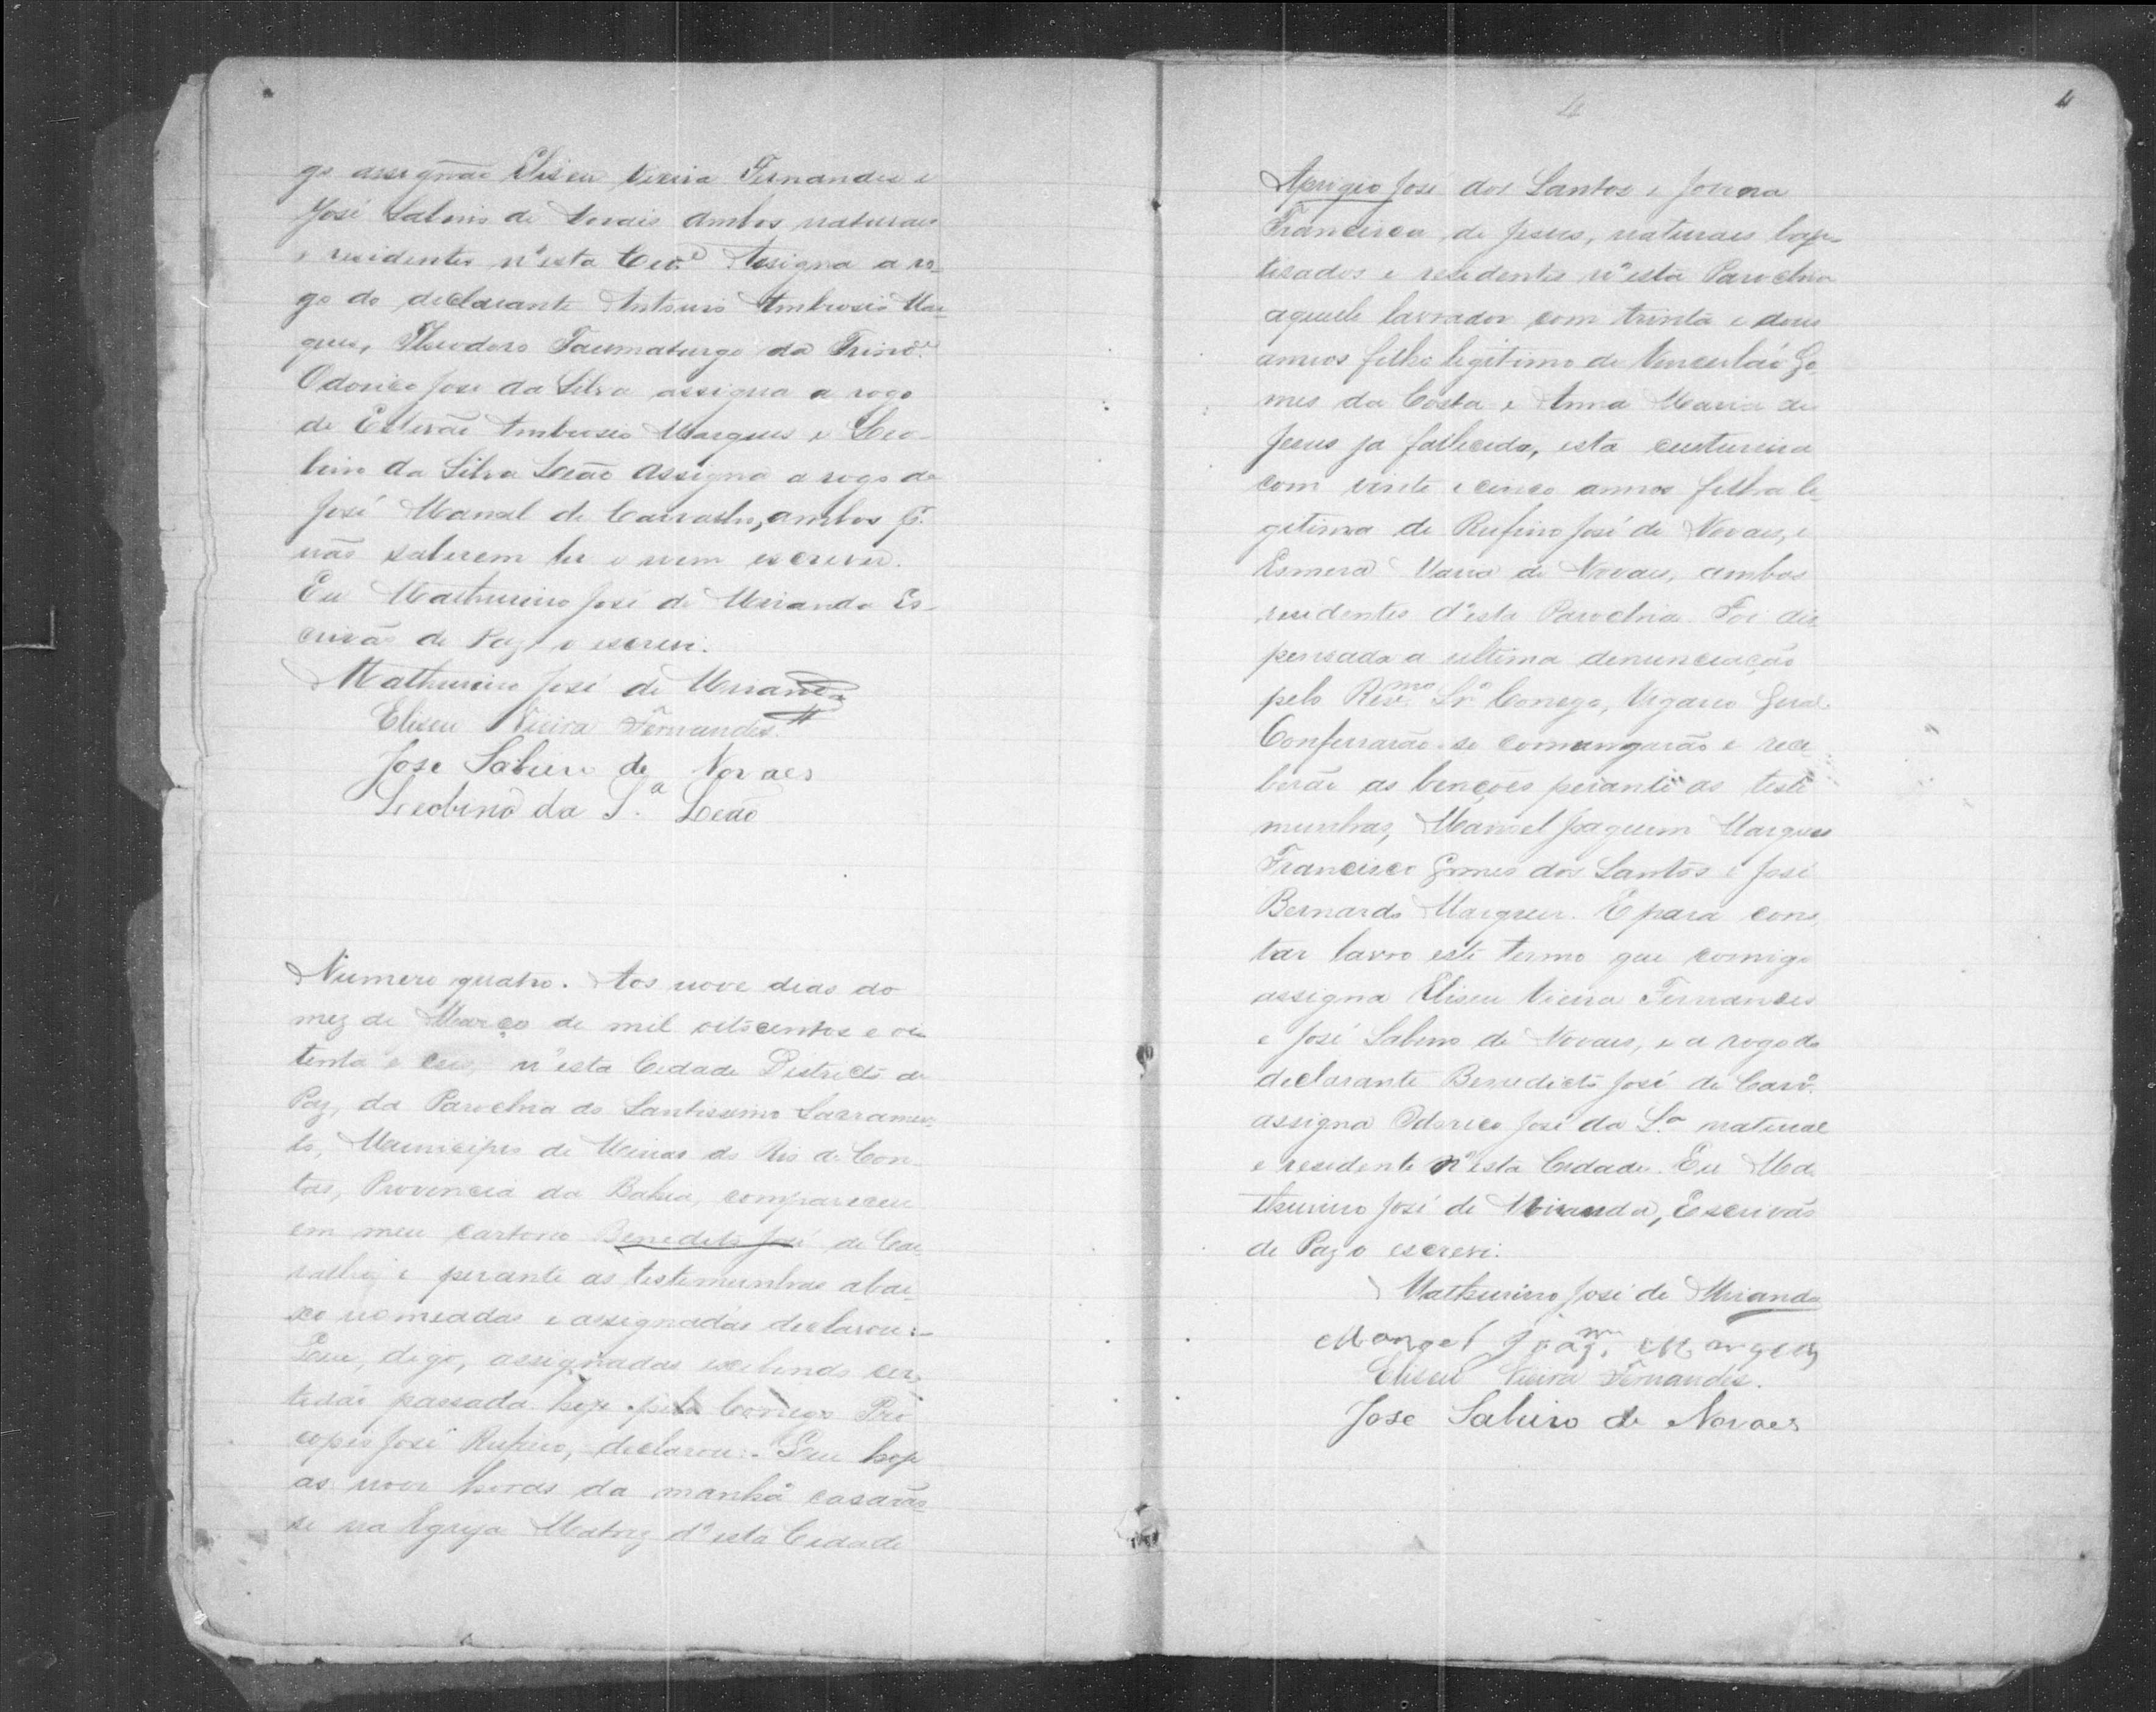 go assignão Eliseu Vieira Fernandes e
José Sabino de Novais ambos naturaes
e residentes n'esta Cid.e Assigna a ro-
go do declarante Antonio Ambrosio Mar-
ques, Theodoro Taumaturgo da Trind.e
Odorico José da Silva assigna a rogo
de Estevão Ambrosio Marques e Leo-
bino da Silva Leão assigna a rogo de
José Manoel de Carvalho, ambos p.
não saberem ler e nem escrever.
Eu Mathurino José de Miranda Es-
crivão de Paz o escrevi.
Mathurino José de Miranda
Eliseu Vieira Fernandes
Jose Sabino de Novaes
Leobino da S.a Leão
Numero quatro. Aos nove dias do
mez de Março de mil oitocentos e oi-
tenta e n'esta Cidade Districto de
Paz, da Parochia do Santissimo Sacramen-
to, Municipio de Minas do Rio de Con-
tas, Provincia da Bahia, compareceu
em meu cartorio Benedicto José de Car-
valho, e perante as testemunhas abai-
xo nomeadas e assignadas declarou:-
Que, digo, assignadas exibindo cer-
tidão passada hoje pelo Conego Pro
copio José Rufino, declarou:- Que hoje
as nove horas da manhã casarão-
se na Egreja Matriz d'esta Cidade
4
4
Aprigio José dos Santos e Jovina
Francisca de Jesus, naturaes bap-
tisados e residentes n'esta Parochia
aquele lavrador com trinta e dous
annos filho legitimo de Venceslão Go-
mes da Costa e Anna Maria de
Jesus ja fallecida, esta custureira
com vinte e cinco annos filha le-
gitima de Rufino José de Novaes, e
Esmera Maria de Novaes, ambos
residentes d'esta Parochia. Foi dis-
pensada a ultima denunciação
pelo Revmo Snr. Conego, Vigario Geral
Confessarão-se comungarão e rece
berão as benções perante as teste
munhas, Manoel Joaquim Marques
Francisco Gomes dos Santos e José
Bernardo Marques. E para cons
tar lavro este termo que comigo
assigna Eliseu Vieira Fernandes
e José Sabino de Novaes, e a rogo do
declarante Benedicto José de Carv.o
assigna Odorico José da S.a natural
e residente n'esta Cidade. Eu Ma-
thurino José de Miranda, Escrivão
de Paz o escrevi.
Mathurino José de Miranda
Manoel Joaqm. Marques
Eliseu Vieira Fernandes.
Jose Sabino de Novaes